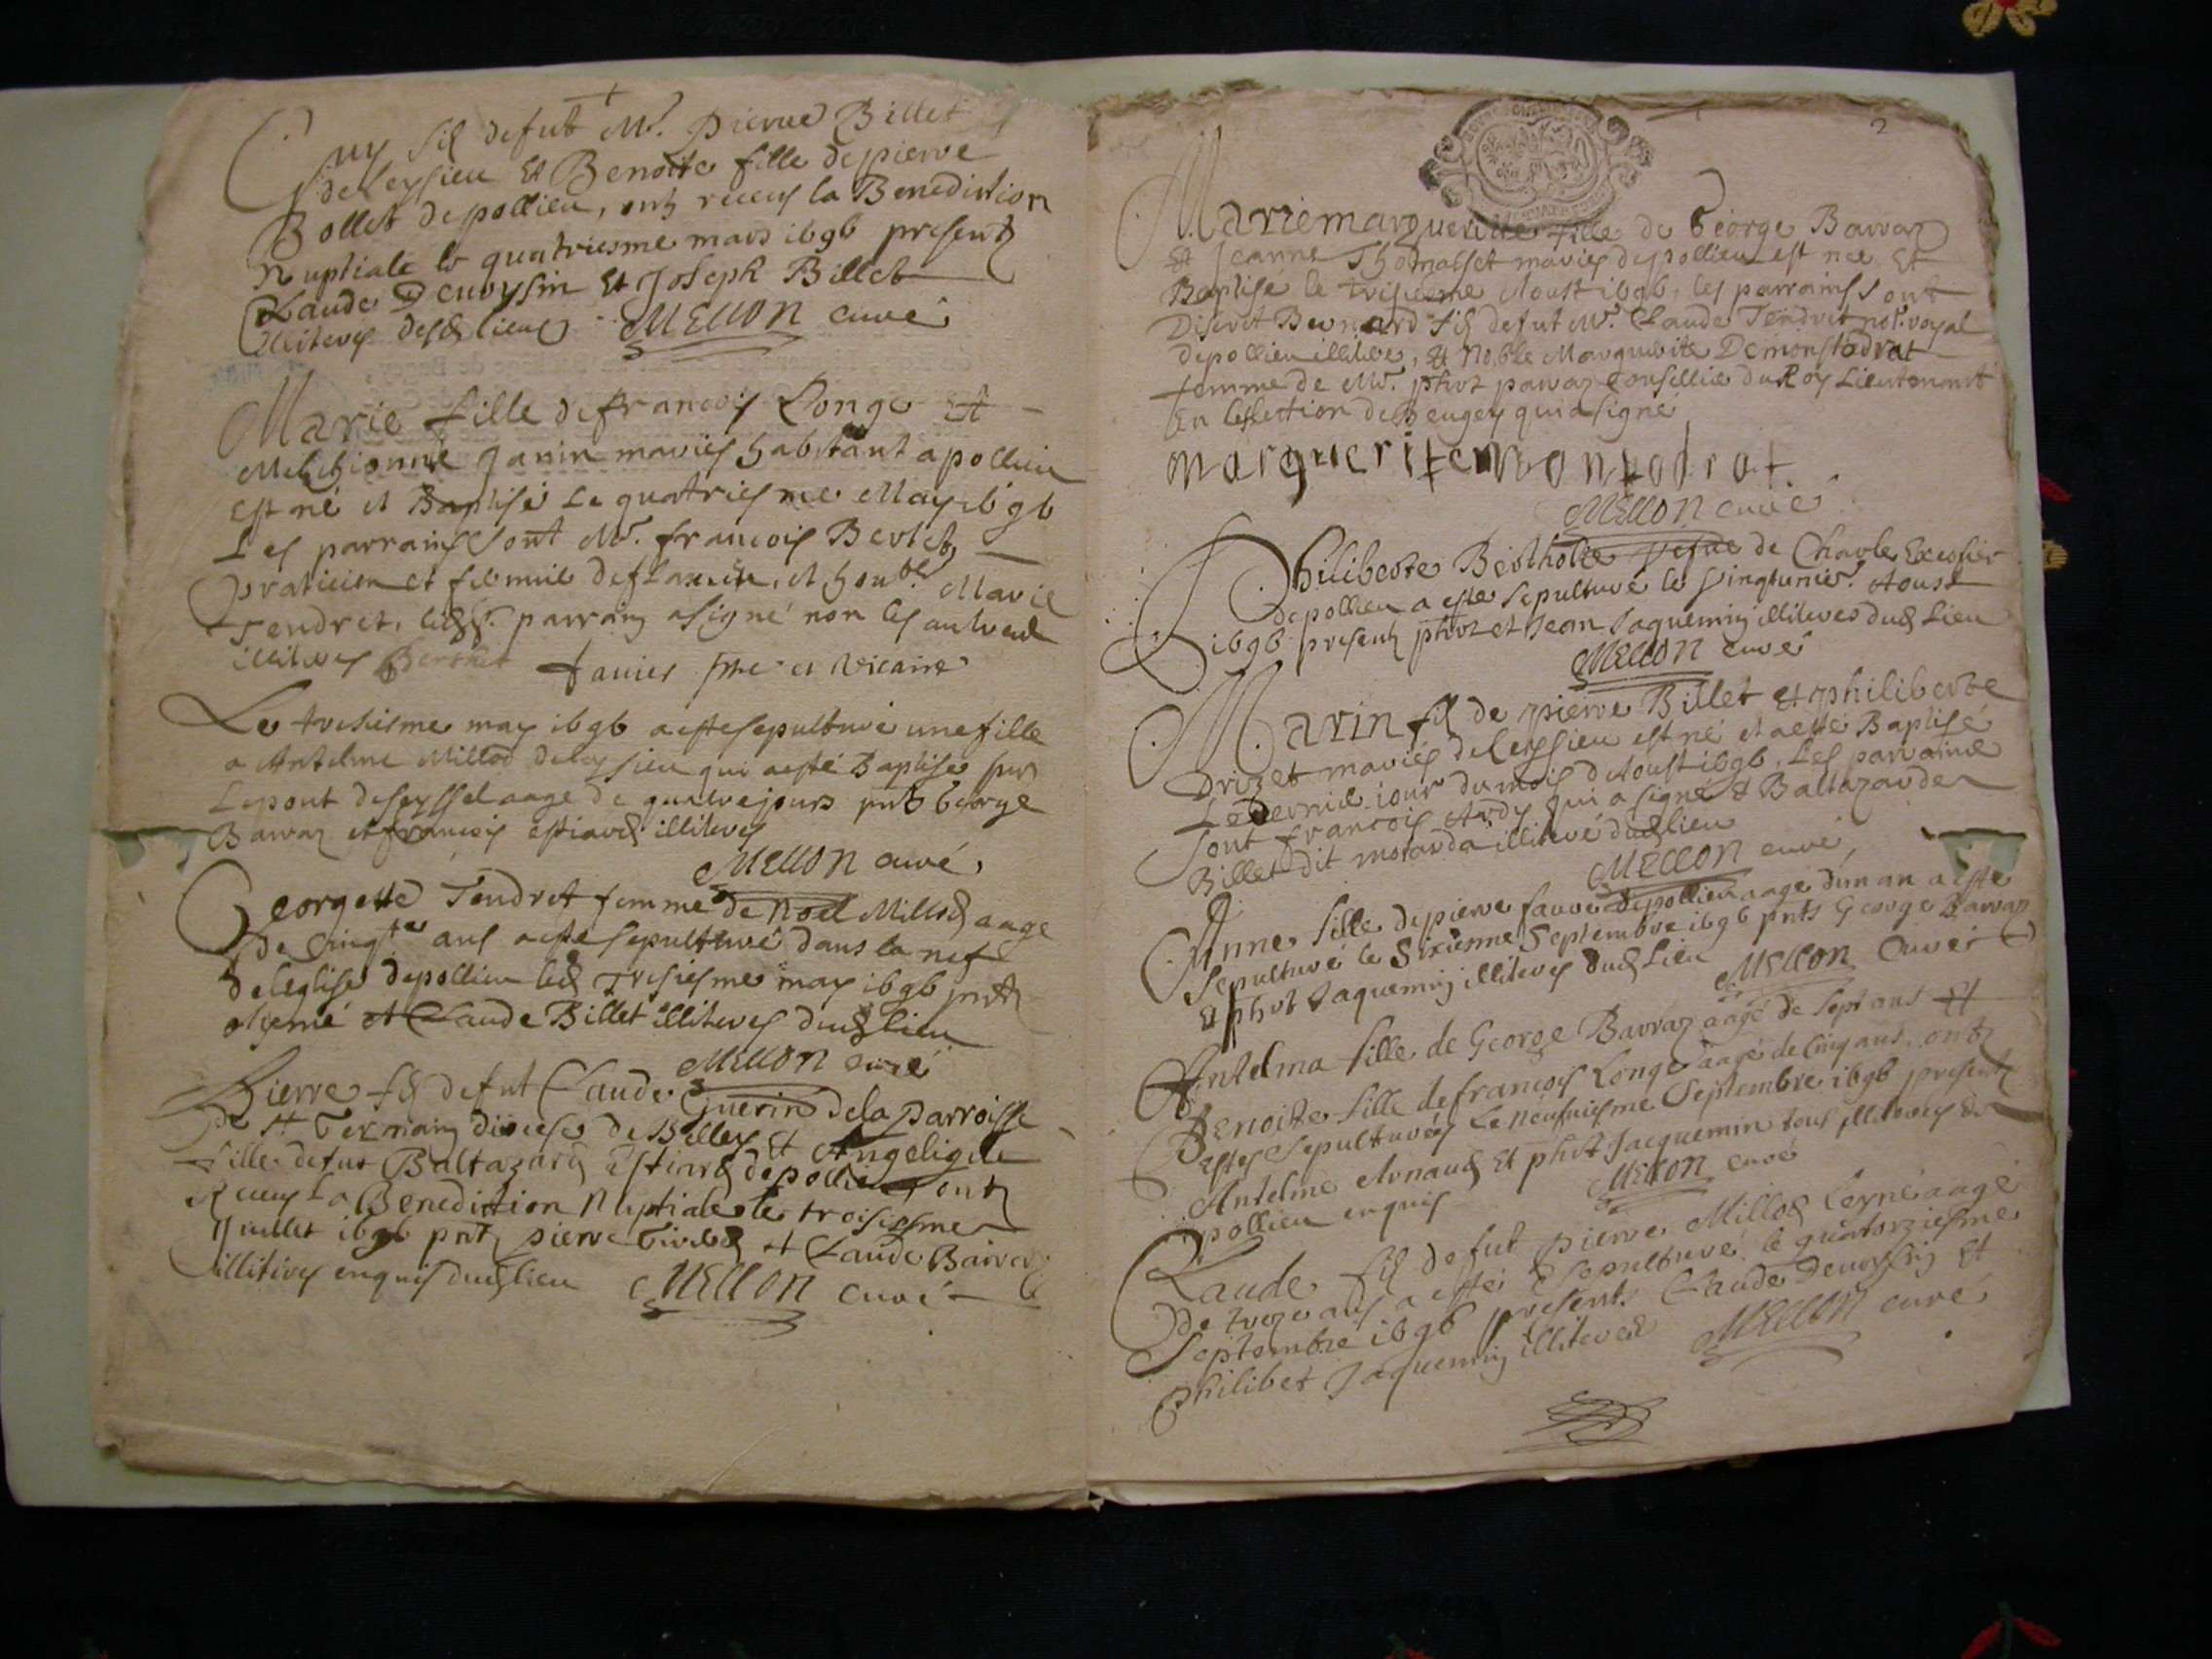 Guy fils defut Mr. pierre Billet
de leyssieu Et Benoite fille de pierre
Bollet depollieu, ont receus la Benediction
Nuptiale le quatriesme mars 1696 presents
Claude Devoysin Et Joseph Billet
illiteres desd lieux MELLON curé
Marie fille defrancois Longe Et
Melchionne Janin mariés habitant a pollieu
est né et Baptisé Le quatriesme May 1696
Les parrains sont Mr. francois Bertet
praticien et et honble. Marie
Tendret, parrain asigné non les autres
illiteres Berthet Janier et vicaire
Le tresiesme may 1696 aeste sepulturé une fille
a Antelme Millod deleyssieu qui aesté Baptisé sur
Lepont deseyssel aagé de quatre jours pnts George
Barraz et francois estiard illiteres
MELLON curé
Georgette Tendret femme de Noel Millod aagé
de cinqte ans aesté sepulturé dans la nef
deleglise depollieu led Tresiesme may 1696 pnts
et Claude Billet illiteres dudlieu
MELLON curé
Pierre fils defut Claude Guerin dela parroisse
de St Germain diocese de Belley Et Angelique
fille defut Baltazard Estiard depollieu, ont
Receus La Benediction Nuptiale le troisiesme
Juillet 1696 pnts pierre et Claude Barraz
illiteres enquis dudlieu MELLON curé
2
Mariemarguerite fille de George Barraz
Et Jeanne Thomasset mariés depollieu est née Et
Baptisé le Aoust 1696, les parrains sont
Discret Bernard fils defut Mr. Claude Tendret not. royal
depollieu illitere, et Noble Marguerite Demonfodrat
femme de Mr. phrt parraz Conseillie du Roy Lieutenant
En leslection deBeugey qui a signé
marguerite monfodrat
MELLON curé
Philiberte Bertholte vefue de Charle
depollieu a este sepulturé le vingtunie. Aoust
1696 presents phrt et Jean Jaquemin illiteres dud Lieu
MELLON curé
Marin fils de pierre Billet Et philiberte
Drizet mariés deleyssieu est né et aesté Baptisé
Ledernie iour dumois dAoust 1696, Les parrains
sont francois Ardy qui a signé & Baltazarde
Billet dit morarda illiteré dudlieu
MELLON curé
Anne fille depierre fauvre depollieu aagé dun an aesté
Sepulturé le Sixiesme Septembre 1696 pnts George Barraz
Et phrt Jaquemin illiteres dud Lieu MELLON Curé
Antelma fille de George Barraz aagé de sept ans Et
Benoite fille defrancois Longe aagé de cinq ans, ont
estes sepulturés Le neufuiesme Septembre 1696 presents
Antelme Arnaud Et phrt Jacquemin tous illiteres de
pollieu enquis MELLON curé
Claude fils defut pierre Millod aagé
De treze ans a esté sepulturé le quatorziesme
Septembre 1696 presents Claude Devoysin Et
Philibet Jaquemin illiteres MELLON curé